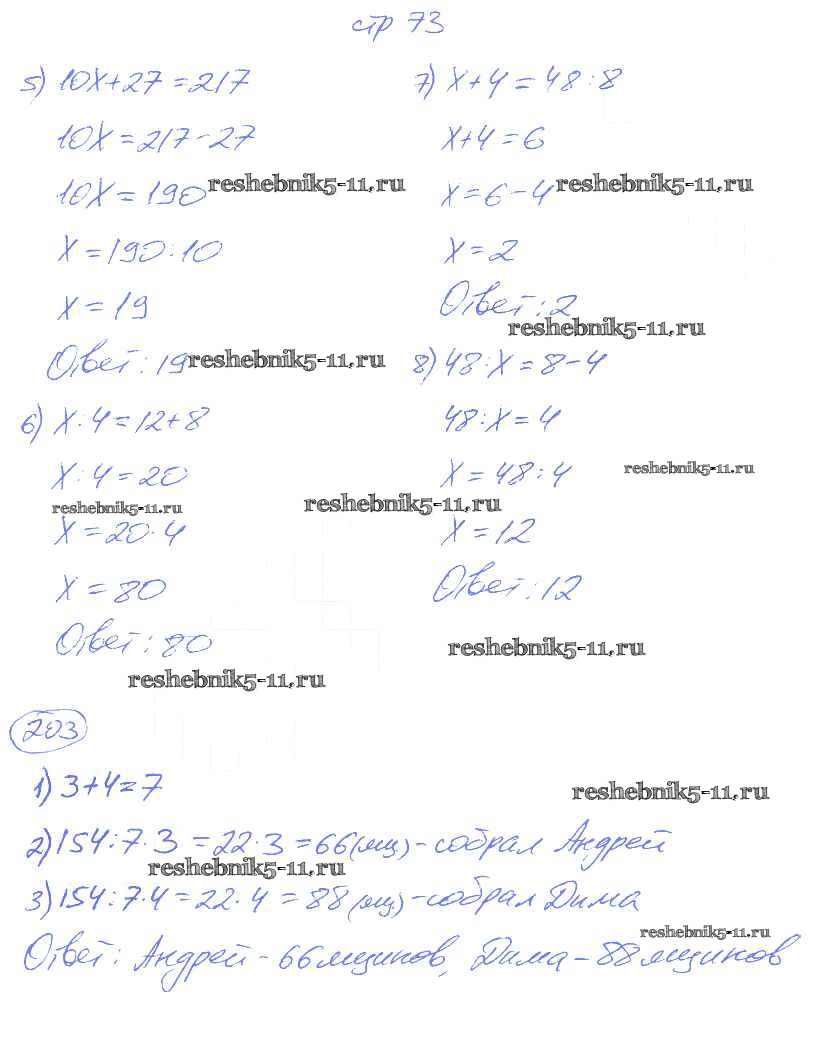 стр 73
5) 10x+27=217
10x=217-27
10x=190
reshebnik5-11.ru
x=190:10
x=19
Ответ: 19
reshebnik5-11.ru
6) x:4=12+8
x:4=20
reshebnik5-11.ru
x=20·4
x=80
Ответ: 80
reshebnik5-11.ru
7) x+4=48:8
x+4=6
x=6-4
reshebnik5-11.ru
x=2
Ответ: 2
reshebnik5-11.ru
8) 48:x=8-4
48:x=4
x=48:4
reshebnik5-11.ru
reshebnik5-11.ru
x=12
Ответ: 12
reshebnik5-11.ru
203
1) 3+4=7
reshebnik5-11.ru
2) 154:7·3=22·3=66(ящ)-собрал Андрей
reshebnik5-11.ru
3) 154:7·4=22·4=88(ящ)-собрал Дима
reshebnik5-11.ru
Ответ: Андрей-66 ящиков, Дима-88 ящиков